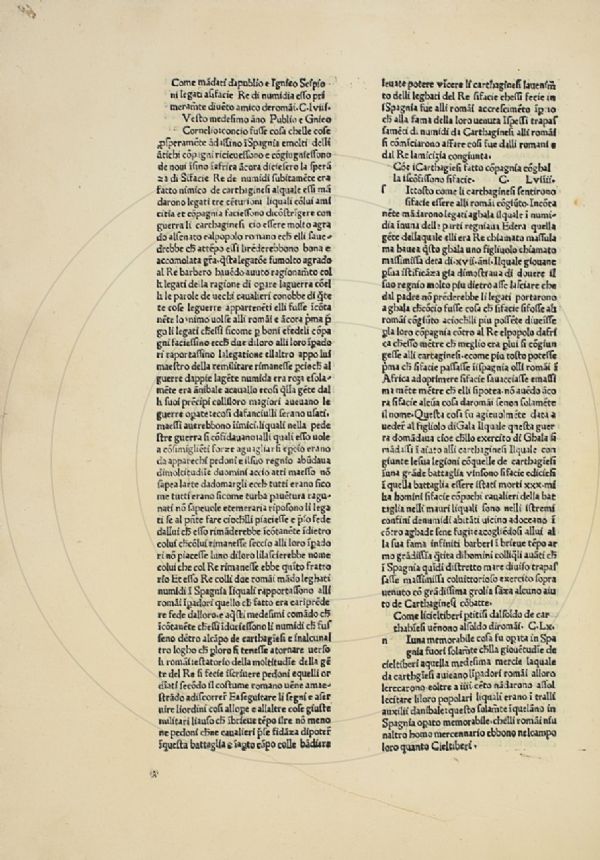 Come mãdati dapublio e Igneo Scipio
ni legati asifacie Re di numidia esso pri
meramẽte diuẽto amico deromãi. C. lviii.
Vesto medesimo ãno Publio e Gneo
Cornelio tconcio fusse cosa chelle cose
ꝓsperamẽte ãdassino i Spagnia emolti delli
ãtichi cõpagni riceuessono e cõgiugniessono
de noui isino i africa ãcora disciesero la sperã
za di Sifacie Re de numidi subitamẽte era
fatto nimico de carthaginesi alquale essi mã
darono legati tre cẽturioni liquali cõlui ami
citia et cõpagnia faciessono dicõstrigere con
guerra li carthaginesi cio essere molto agra
do alsenato alpopolo romano
drebbe ch attẽpo essi liredẽrebbono bona e
accomolata gr̃a. q̃sta legatõe fumolto agrado
al Re barbero bauẽdo auuto ragionam̃to col
li legati della ragione di opare laguerra cõel
li le parole de uechi caualieri conobbe di q̃te
te cose leguerre appartenẽti elli fusse icõta
nẽte lo
go li legati
gniaciessino eccħ due diloro alli loro spado
ri raportassino lalegatione ellaltro appo lui
maestro della remilitare rimanesse
guerre dappie lagẽte numida era roza esola
mẽte era ãnibale acauallo
li suoi prẽcipi collíloro magiori aueuano le
guerre opate tecosi dafanciulli serano usati.
maessi auerebbono iimici. liquali nella pede
stre guerra si cõfidauano alli quali esso uole
a cosimiglieti forze aguagliarsi epcio erano
da apparechi pedoni e ilsuo regnio abũdaua
dimoltitudie duomini accio atti maesso nõ
sapea larte dadomargli eccħ tutti erano sico
me tutti erano sicome turba pauẽtura ragu
nati nõ sapeuole etemeraria riposono li lega
ti se al p̃nte fare ciochlli piaciesse
dallui ch esso rimãderebbe icõtanẽte idietro
colui chcõlui rimanesse seccio alli loro spado
ri nõ piacesse luno diloro lilascierebbe nome
colui che col Re rimanesse ebbe quito fratto
rio Et esso Re colli due romãi mãdo leghati
numidi i Spagnia liquali rapportassono alli
romãi ipadori quello ch fatto era
re fede dalloro. e aq̃sti medesimi comãdo ch
icõtanẽte ch iduciessono li numidi ch fus
seno dẽtro alcãpo de carthagiẽsi e inalcunal
tro logho ch ploro si tenesse atornare uerso
li romãi testatorio della moltitudie della gẽ
te del Re si fecie iscriuere pedoni equelli or
diati serõdo il costume romano uẽne amae
strãdo adiscorrer Ea seguitare li segni e aser
uire liordini cosi allope e allaltre cose giuste
militari liauso ch ibrieue tẽpo ilre nõ meno
ne pedoni chne caualieri
i questa battaglia e iapto cãpo colle bãdiere
leuate potere vicere li carthaginesi lauenim̃
to delli leghati del Re sifacie chessi fecie in
i Spagnia fue alli romãi accrescimẽto ip̃o
ch alla fama della loro uenuta ispessi trapas
samẽti di numidi da Carthaginesi alli romãi
si comiciarono affare cosi fue dalli romani e
dal Re lamicizia congiunta.
Cõe iCarthagiesi fatto cõpagnia cõghal
la iscõfissono sifacie. C. Lviiii.
Ittosto come li carthaginesi sentirono
f sifacie essere alli romãi cõgiũto. Incõta
nẽte mãdarono legati aghala ilquale i numi
dia iuuna dell. parti regniaua Edera quella
gẽte dellaquale elli era Re chiamato massula
ma baueua q̃sto ghala uno figliuolo chiamato
massimissa deta di. xvii. ãni. Ilquale giouane
psua istificãza gia dimostraua di douere il
suo regnio molto piu dietro asse lasciare che
dal padre nõ prẽderebbe li legati portarono
a ghala chcõcio fusse cosa ch sifacie sifosse ali
romãi cõgiũto aciochlli piu possẽte diuiesse
pla loro cõpagnia cõtro al Re elpopolo dafri
ca chesso mẽtre ch meglio era plui si cõgiun
gesse alli cartaginesi. ecome piu tosto potesse
pma ch sifacie passasse i ispagnia ossi romãi i
Africa adoprimere sifacie sauacciasse emassi
ma mẽte mẽtre ch elli ipotea. nõ auẽdo ãco
ra sifacie alcũa cosa daromãi senon solamẽte
il nome. Questa cosa fu agieuolmẽte data a
uedere al figliolo diGala Ilquale questa guer
ra domãdaua cioe chello exercito di Ghala si
mãdassi i aiuto alli carthaginesi Ilquale con
giunte lesua legioni cõquelle de carthagiesi
iuna grãde battaglia vinsono sifacie edicesi
i quella battaglia essere istati morti xxx. mi
lia homini sifacie cõpochi caualieri della bat
taglia nelli mauri liquali sono nelli istremi
confini denumidi abitãti uicino adoceano i
cõtro aghade sene fugitte acogliẽdosi allui al
la sua fama infiniti barberi i brieue tẽpo ar
mo grãdissia q̃tita dihomini colliq̃li auãti ch
i Spagnia quidi distretto mare diuiso trapas
sasse massimissa coluittorioso exercito sopra
uenuto cõ grãdissima grolia sãza alcuno aiu
to de Carthaginesi cõbatte.
Come licieltiberi ptitisi dalsoldo de car
thabiesi uẽnono alsoldo diromãi. C. Lx.
n Iuna memorabile cosa fu opata in Spa
gnia fuori solam̃te chlla giouẽtudie de
cieltiberi aquella medesima mercie laquale
da carthgiesi auieano lipadori romãi alloro
lerecarono eoltre a iiii. cẽto nãdarono assol
lecitare liloro popolari liquali erano i tralli
auxilii danibale. questo solam̃te iquelãno in
Spagnia opato memorabile. chelli romãi niu
naltro homo mercennario ebbono nelcampo
loro quanto Cieltiberi.